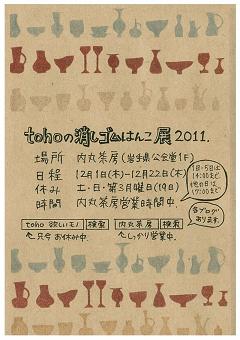 tohoの消しゴムはんこ展 2011.
場所 内丸茶房(岩手県公会堂1F)
日程 12月1日(木)-12月22日(木)
休み 土・日・第3月曜日(19日)
時間 内丸茶房営業時間中.
1日・5日は
14:00まで.
他の日は
17:00まで
toho 欲しいモノ 検索
↑只今お休み中.
内丸茶房 検索
↑しっかり営業中.
各ブログ
あります.